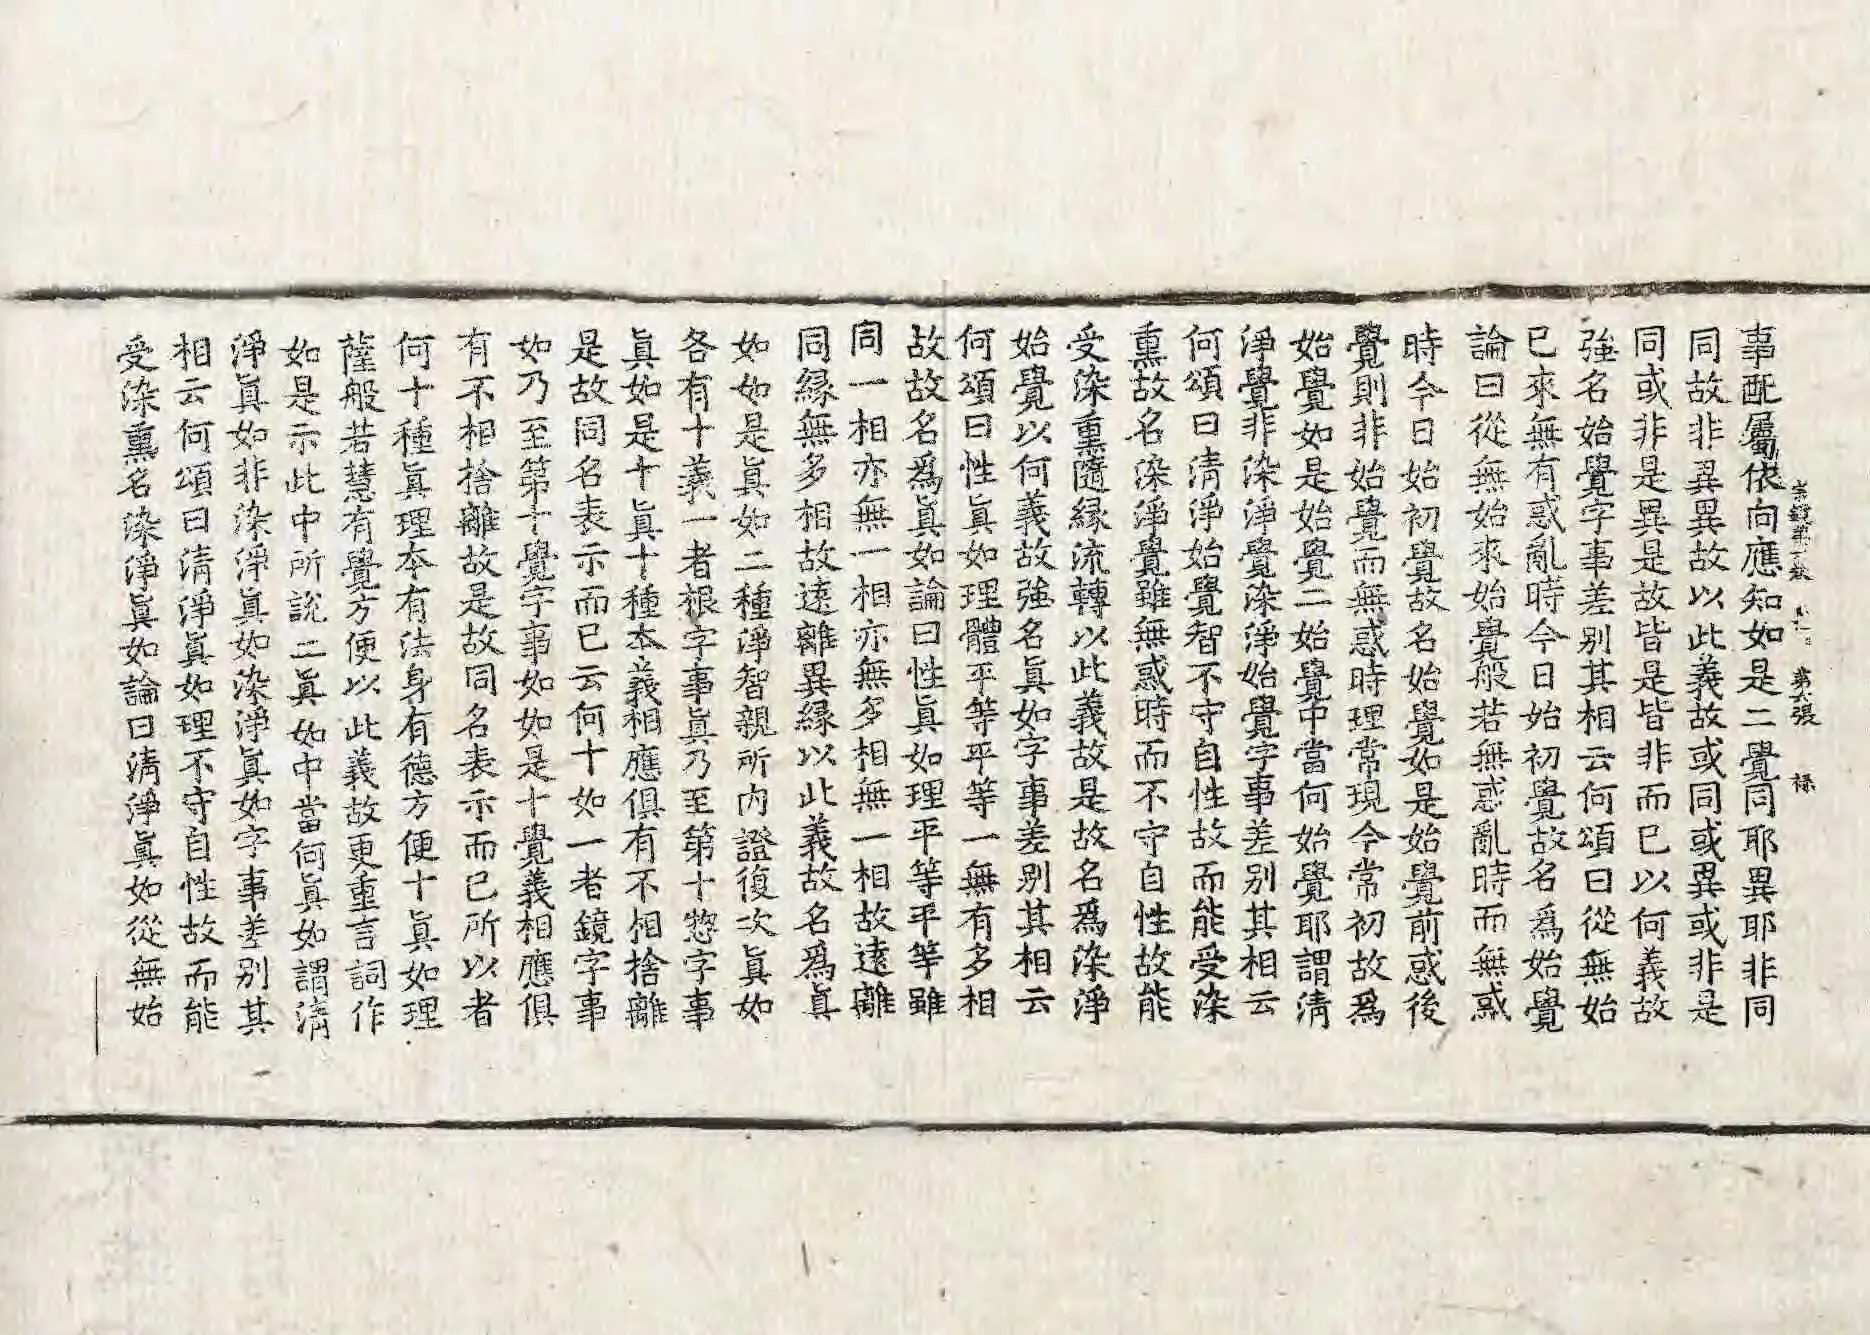 事配屬依向應知如是二覺同耶異耶非同
第六張 祿
同故非異異故以此義故或同或異或非是
同或非是異是故皆是皆非而已以何義故
強名始覺字事差別其相云何頌曰從無始
已來無有惑亂時今日始初覺故名爲始覺
論曰從無始來始覺般若無惑亂時而無惑
時今日始初覺故名始覺如是始覺前惑後
覺則非始覺而無惑時理常現今常初故爲
始覺如是始覺二始覺中當何始覺耶謂淸
淨覺非染淨覺染淨始覺字事差別其相云
何頌曰淸淨始覺智不守自性故而能受染
熏故名染淨覺雖無惑時而不守自性故能
受染熏隨緣流轉以此義故是故名爲染淨
始覺以何義故強名眞如字事差別其相云
何頌曰性眞如理體平等平等一無有多相
故故名爲眞如論曰性眞如理平等平等雖
同一相亦無一相亦無多相無一相故遠離
同緣無多相故遠離異緣以此義故名爲眞
如如是眞如二種淨智親所內證復次眞如
各有十義一者根字事眞乃至第十惣字事
眞如是十眞十種本義相應俱有不相捨離
是故同名表示而已云何十如一者鏡字事
如乃至第十覺字事如如是十覺義相應俱
有不相捨離故是故同名表示而已所以者
何十種眞理本有法身有德方便十眞如理
薩般若慧有覺方便以此義故更重言詞作
如是示此中所說二眞如中當何眞如謂淸
淨眞如非染淨眞如染淨眞如字事差別其
相云何頌曰淸淨眞如理不守自性故而能
受染熏名染淨眞如論曰淸淨眞如從無始